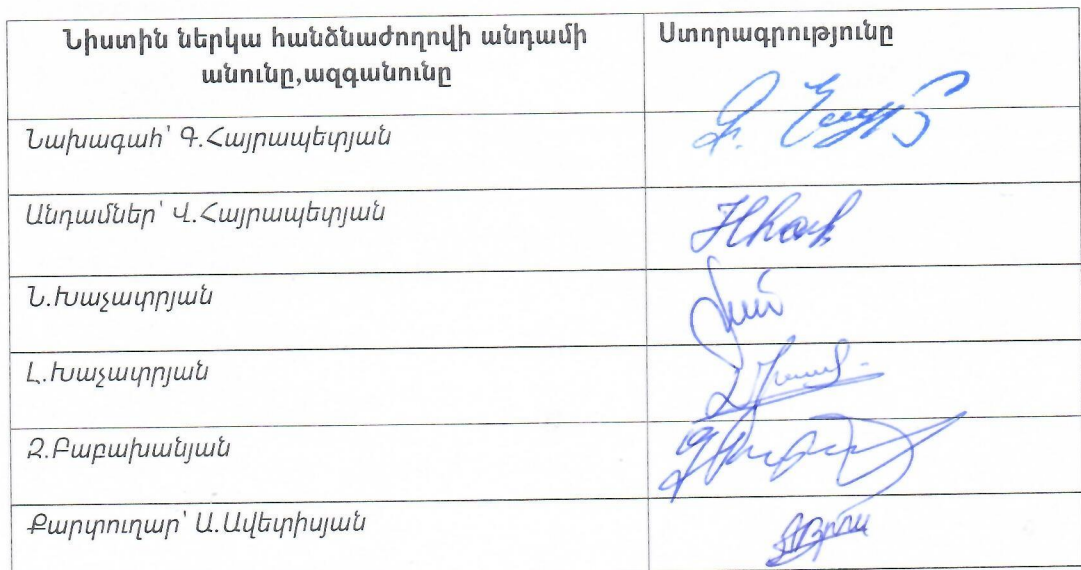 Նիստին ներկա հանձնաժողովի անդամի
անունը,ազգանունը
Ստորագրությունը
Նախագահ՝ Գ.Հայրապետյան
Անդամներ՝ Վ.Հայրապետյան
Ն.Խաչատրյան
Լ.Խաչատրյան
Զ.Բաբախանյան
Քարտուղար՝ Ա.Ավետիսյան